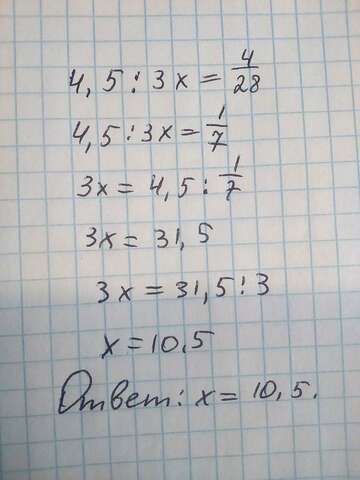 4,5 : 3x = 4/28
4,5 : 3x = 1/7
3x = 4,5 : 1/7
3x = 31,5
3x = 31,5 : 3
x = 10,5
Ответ: x = 10,5.